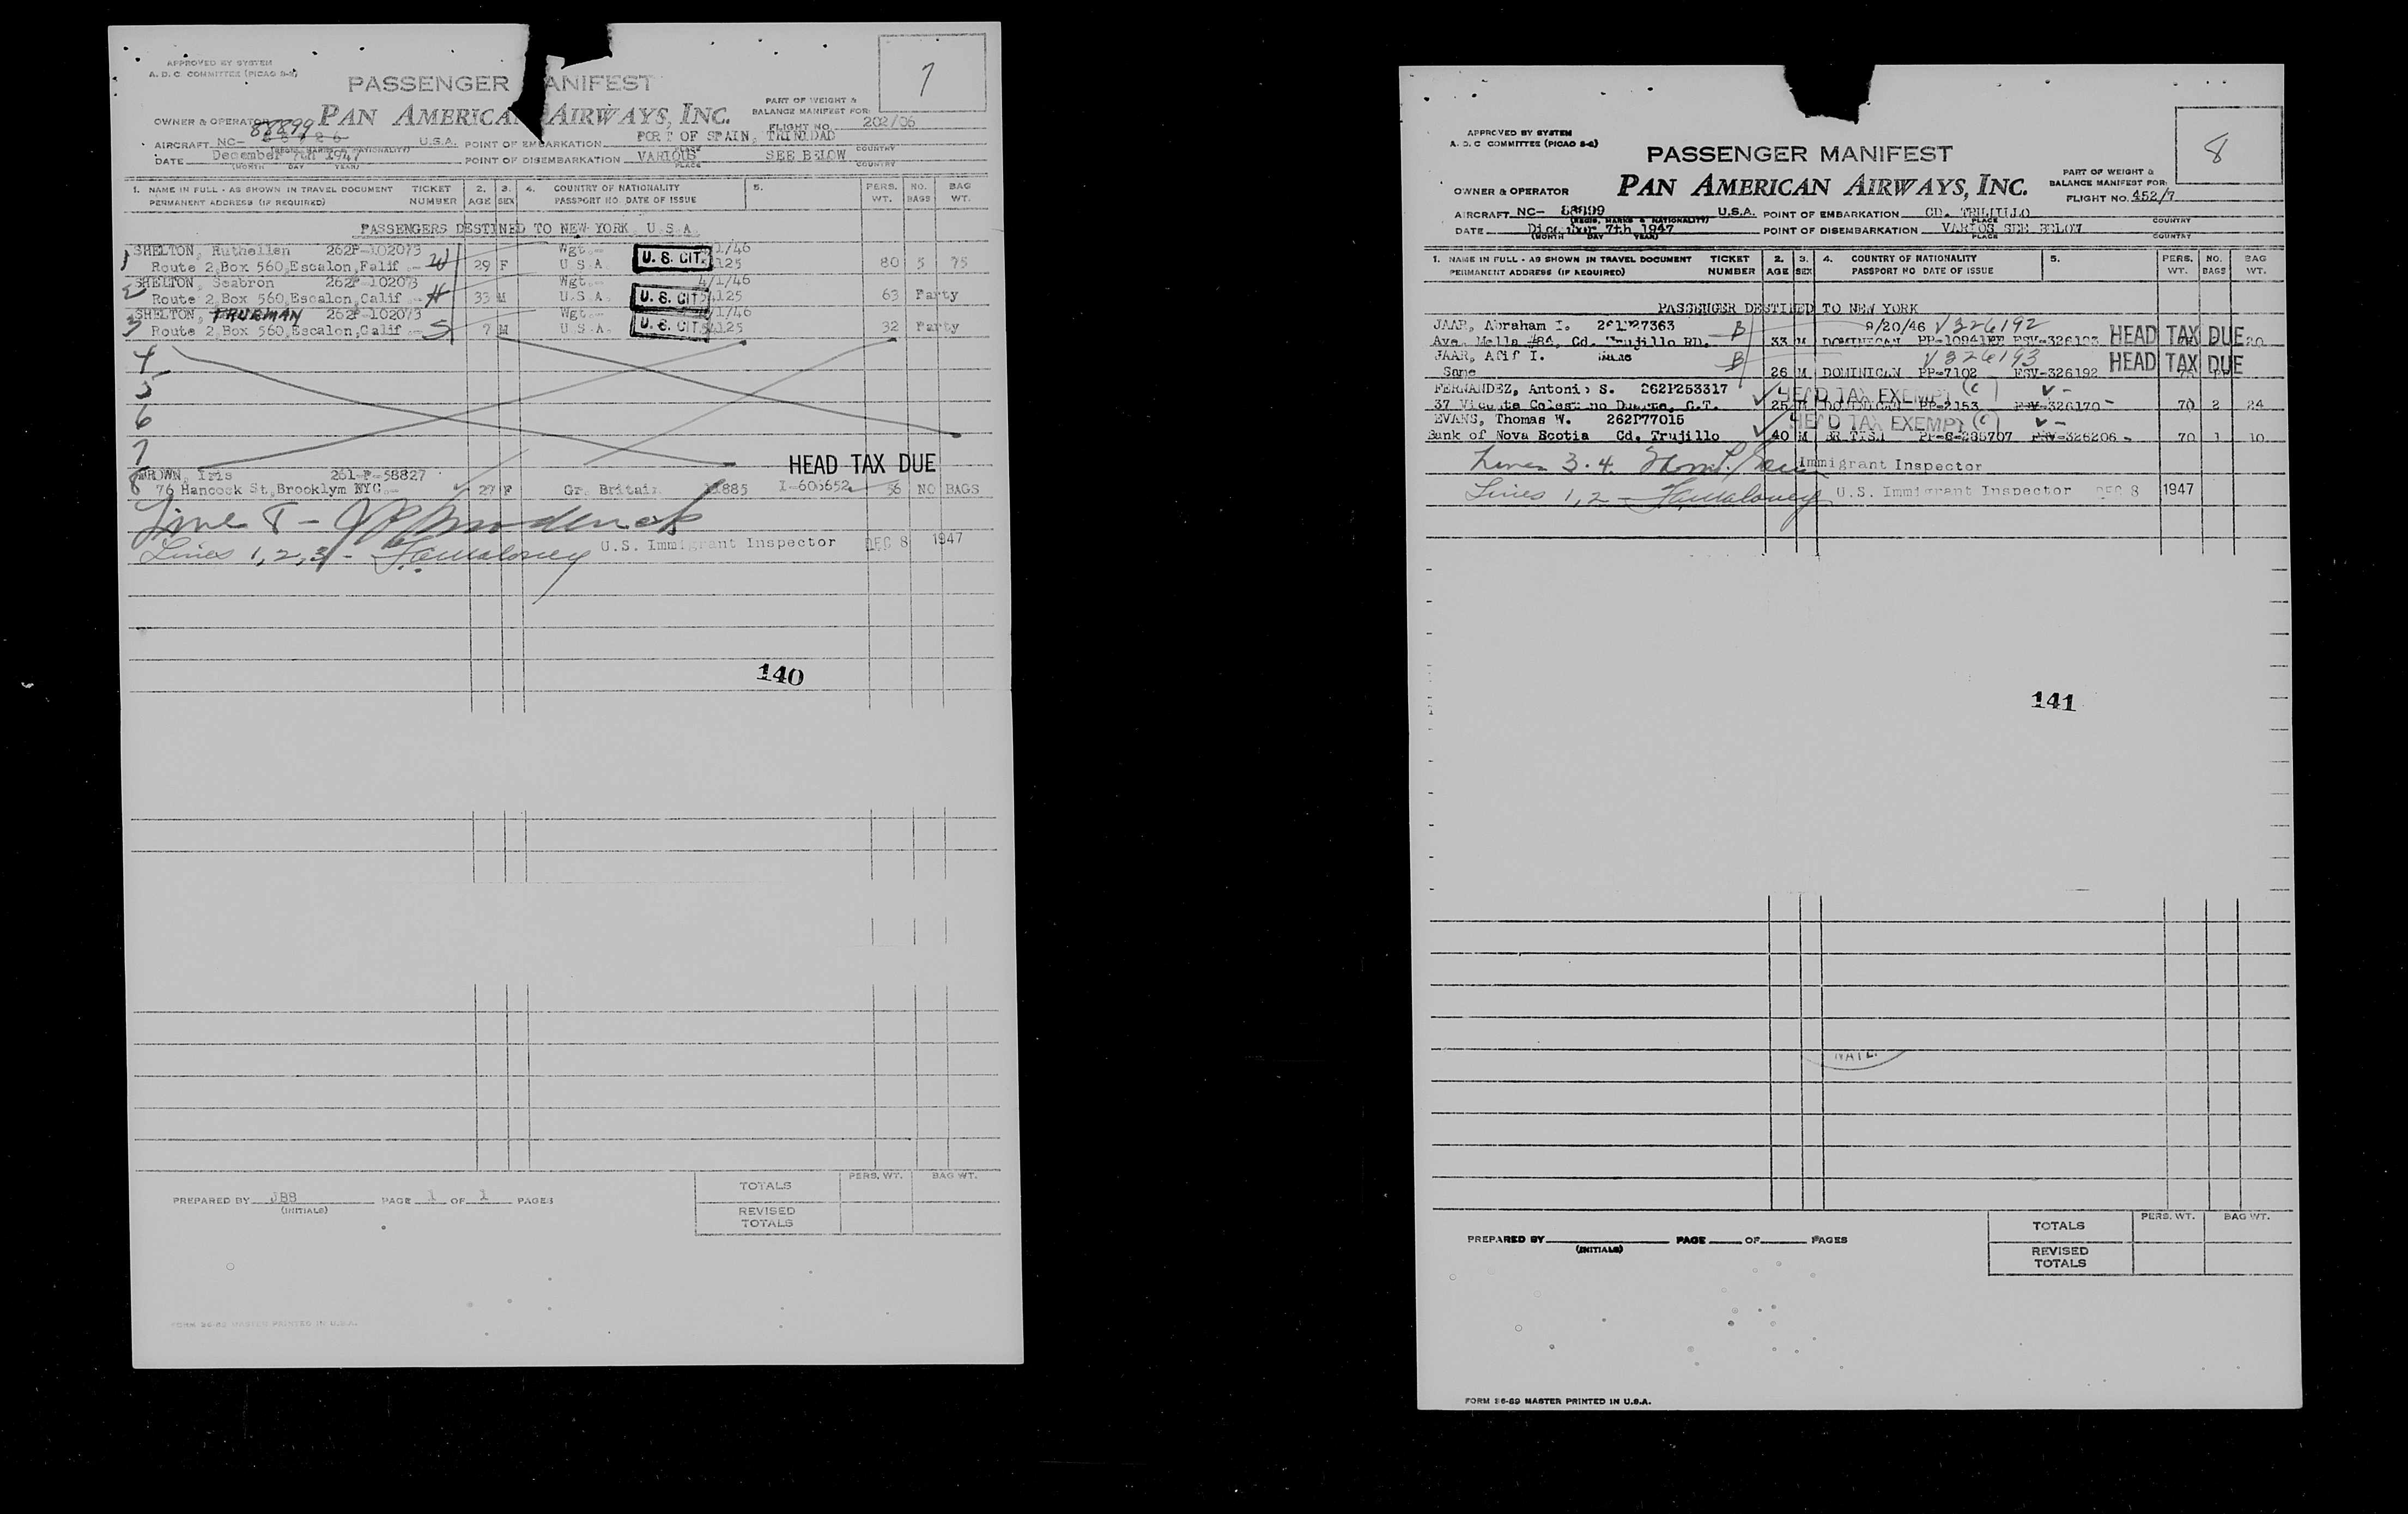 APPROVED BY SYSTEM
A. D. C. COMMITTEE (PICAO S-2)
7
PASSENGER ANIFEST
PART OF WEIGHT &
BALANCE MANIFEST FOR:
OWNER & OPERATOR PAN AMERICAN AIRWAYS, INC.
FLIGHT NO. 202/06
88899
AIRCRAFT NC- U.S.A. POINT OF EMBARKATION PORT OF SPAIN, TRINIDAD
(REGIS. MARKS & NATIONALITY) PLACE COUNTRY
DATE December 7th 1947 POINT OF DISEMBARKATION VARIOUS SEE BELOW
(MONTH DAY YEAR) PLACE COUNTRY
1. NAME IN FULL - AS SHOWN IN TRAVEL DOCUMENT TICKET 2. 3. 4. COUNTRY OF NATIONALITY 5. PERS. NO. BAG
PERMANENT ADDRESS (IF REQUIRED) NUMBER AGE SEX PASSPORT NO. DATE OF ISSUE WT. BAGS WT.
PASSENGERS DESTINED TO NEW YORK, U.S.A.
1 SHELTON, Ruthellen 262P-102073 Wgt.- /1/46
Route 2,Box 560,Escalon,Falif.- W 29 F U.S.A. U. S. CIT. 125 80 5 75
2 SHELTON, Seabron 262P-102073 Wgt.- 4/1/46
Route 2,Box 560,Escalon,Calif.- H 33 M U.S.A. U. S. CIT. 125 63 Party
3 SHELTON, TRUEMAN 262P-102073 Wgt.- /1/46
Route 2,Box 560,Escalon,Calif.- S 7 M U.S.A. U. S. CIT. 125 32 Party
4
5
6
7
HEAD TAX DUE
8 BROWN, Iris 261-P-58827
76 Hancock St,Brooklym NYC.- 27 F Gr. Britain 885 I-605652 56 NO BAGS
Line 8 -
Lines 1, 2, 3 - U.S. Immigrant Inspector DEC 8 1947
140
PREPARED BY JBS PAGE 1 OF 1 PAGES
(INITIALS)
PERS. WT. BAG WT.
TOTALS
REVISED
TOTALS
FORM 26-89 MASTER PRINTED IN U.S.A.
APPROVED BY SYSTEM
A. D. C. COMMITTEE (PICAO S-2)
8
PASSENGER MANIFEST
PART OF WEIGHT &
BALANCE MANIFEST FOR:
OWNER & OPERATOR PAN AMERICAN AIRWAYS, INC.
FLIGHT NO. 452/7
AIRCRAFT NC- 88899 U.S.A. POINT OF EMBARKATION CD. TRUJILLO
(REGIS. MARKS & NATIONALITY) PLACE COUNTRY
DATE 7th 1947 POINT OF DISEMBARKATION VARIOS SEE BELOW
(MONTH DAY YEAR) PLACE COUNTRY
1. NAME IN FULL - AS SHOWN IN TRAVEL DOCUMENT TICKET 2. 3. 4. COUNTRY OF NATIONALITY 5. PERS. NO. BAG
PERMANENT ADDRESS (IF REQUIRED) NUMBER AGE SEX PASSPORT NO DATE OF ISSUE WT. BAGS WT.
PASSENGER DESTINED TO NEW YORK
JAAR, Abraham I. B 9/20/46 V326192 HEAD TAX DUE
Ave. Mella Cd. Trujillo RD. 33 M DOMINICAN 20
JAAR, Afif I. B V326193 HEAD TAX DUE
Same 26 M DOMINICAN PP-7102 FSV-326192
FERNANDEZ, Antonio S. 262P253317 HEAD TAX EXEMPT (C)
37 Vicente Celestino Duarte, C.T. 25 M DOMINICAN PP-2153 FSV-326170 - 70 2 24
EVANS, Thomas W. 262P77015 HEAD TAX EXEMPT (C)
Bank of Nova Scotia Cd. Trujillo 40 M BRITISH FSV-326206 - 70 1 10
Lines 3. 4. Immigrant Inspector
Lines 1, 2 - U.S. Immigrant Inspector DEC 8 1947
141
NATL.
PREPARED BY PAGE OF PAGES
(INITIALS)
PERS. WT. BAG WT.
TOTALS
REVISED
TOTALS
FORM 26-89 MASTER PRINTED IN U.S.A.